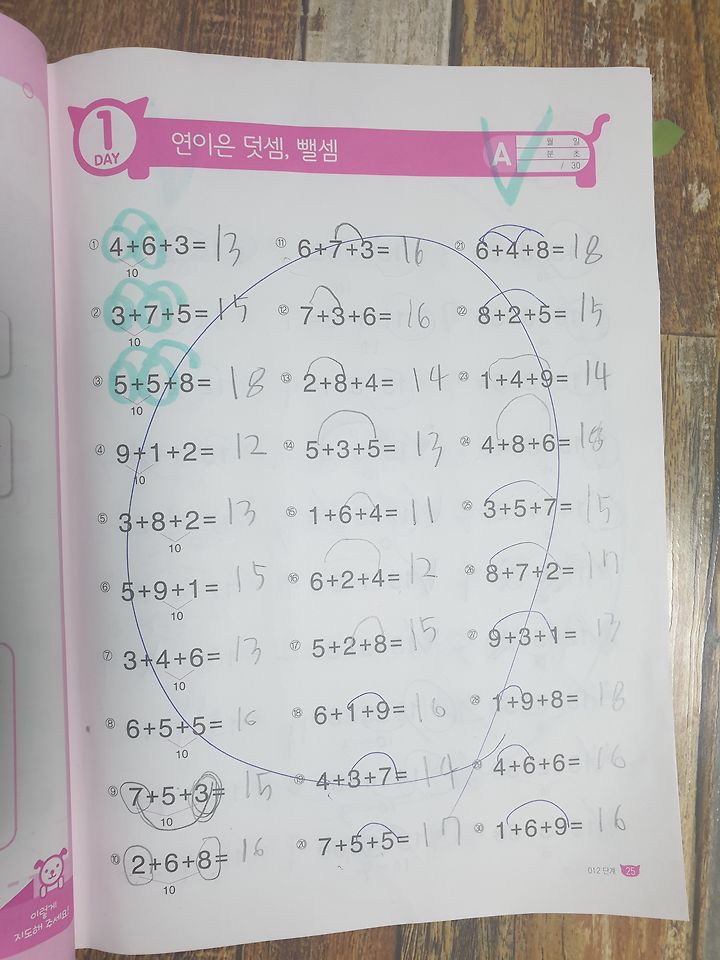 1
DAY
연이은 덧셈, 뺄셈
A
월 일
분 초
/ 30
① 4+6+3= 13
10
② 3+7+5= 15
10
③ 5+5+8= 18
10
④ 9+1+2= 12
10
⑤ 3+8+2= 13
10
⑥ 5+9+1= 15
10
⑦ 3+4+6= 13
10
⑧ 6+5+5= 16
10
⑨ 7+5+3= 15
10
⑩ 2+6+8= 16
10
⑪ 6+7+3= 16
⑫ 7+3+6= 16
⑬ 2+8+4= 14
⑭ 5+3+5= 13
⑮ 1+6+4= 11
⑯ 6+2+4= 12
⑰ 5+2+8= 15
⑱ 6+1+9= 16
⑲ 4+3+7= 14
⑳ 7+5+5= 17
㉑ 6+4+8= 18
㉒ 8+2+5= 15
㉓ 1+4+9= 14
㉔ 4+8+6= 18
㉕ 3+5+7= 15
㉖ 8+7+2= 17
㉗ 9+3+1= 13
㉘ 1+9+8= 18
㉙ 4+6+6= 16
㉚ 1+6+9= 16
012 단계 25
이렇게
지도해 주세요!